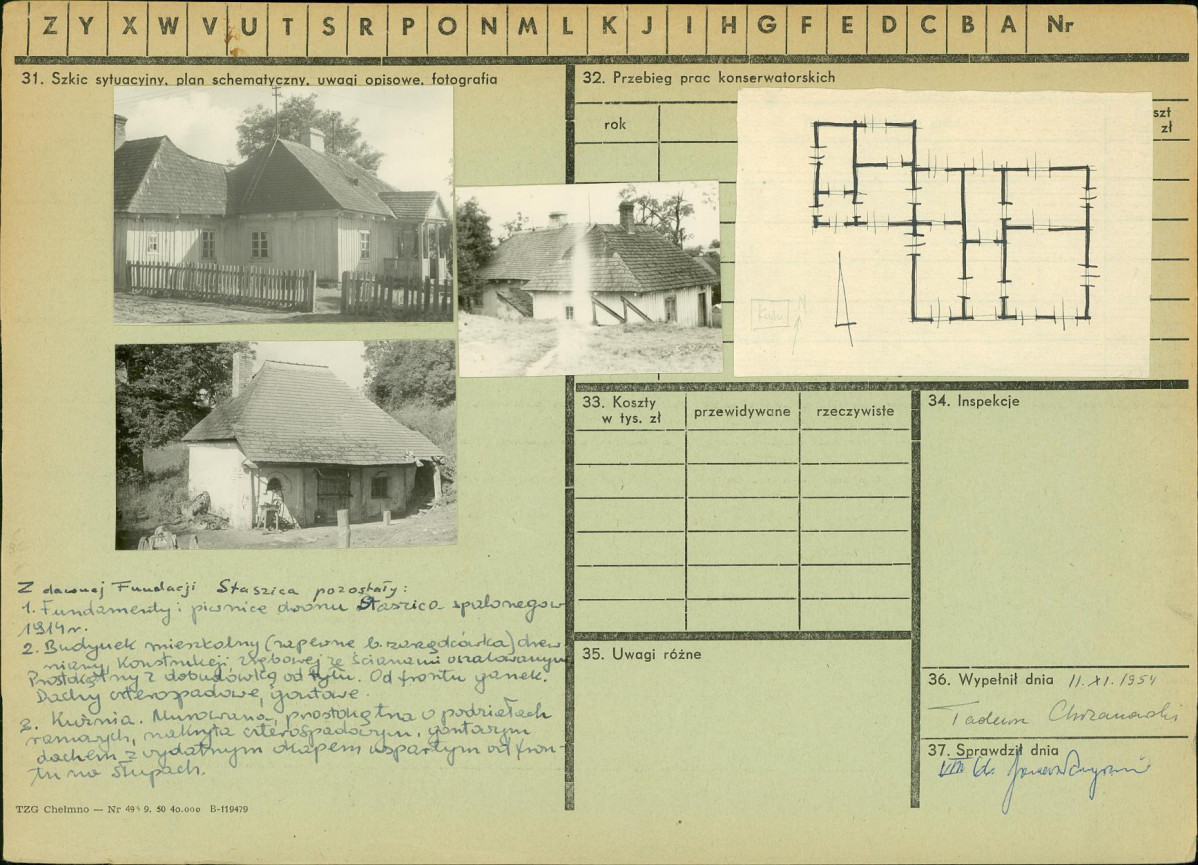 Z Y X W V U T S R P O N M L K J I H G F E D C B A Nr
31. Szkic sytuacyjny, plan schematyczny, uwagi opisowe, fotografia
Z dawnej Fundacji Staszica pozostały:
1. Fundamenty i piwnice dworu Staszica spalonego w
1914 r.
2. Budynek mieszkalny (zapewne b. zarządcówka) drew-
niany, konstrukcji zrębowej ze ścianami oszalowanymi
Prostokątny z dobudówką od tyłu. Od frontu ganek.
Dachy czterospadowe, gontowe.
3. Kuźnia. Murowana, prostokątna o podziałach
ramowych, nakryta czterospadowym, gontowym
dachem z wydatnym okapem wspartym od fron-
tu na słupach.
TZG Chełmno — Nr 49 9. 50 40.000 B-119479
32. Przebieg prac konserwatorskich
rok
szt
zł
N
33. Koszty
w tys. zł
przewidywane
rzeczywiste
34. Inspekcje
35. Uwagi różne
36. Wypełnił dnia 11.XI.1954
Tadeusz Chrzanowski
37. Sprawdził dnia